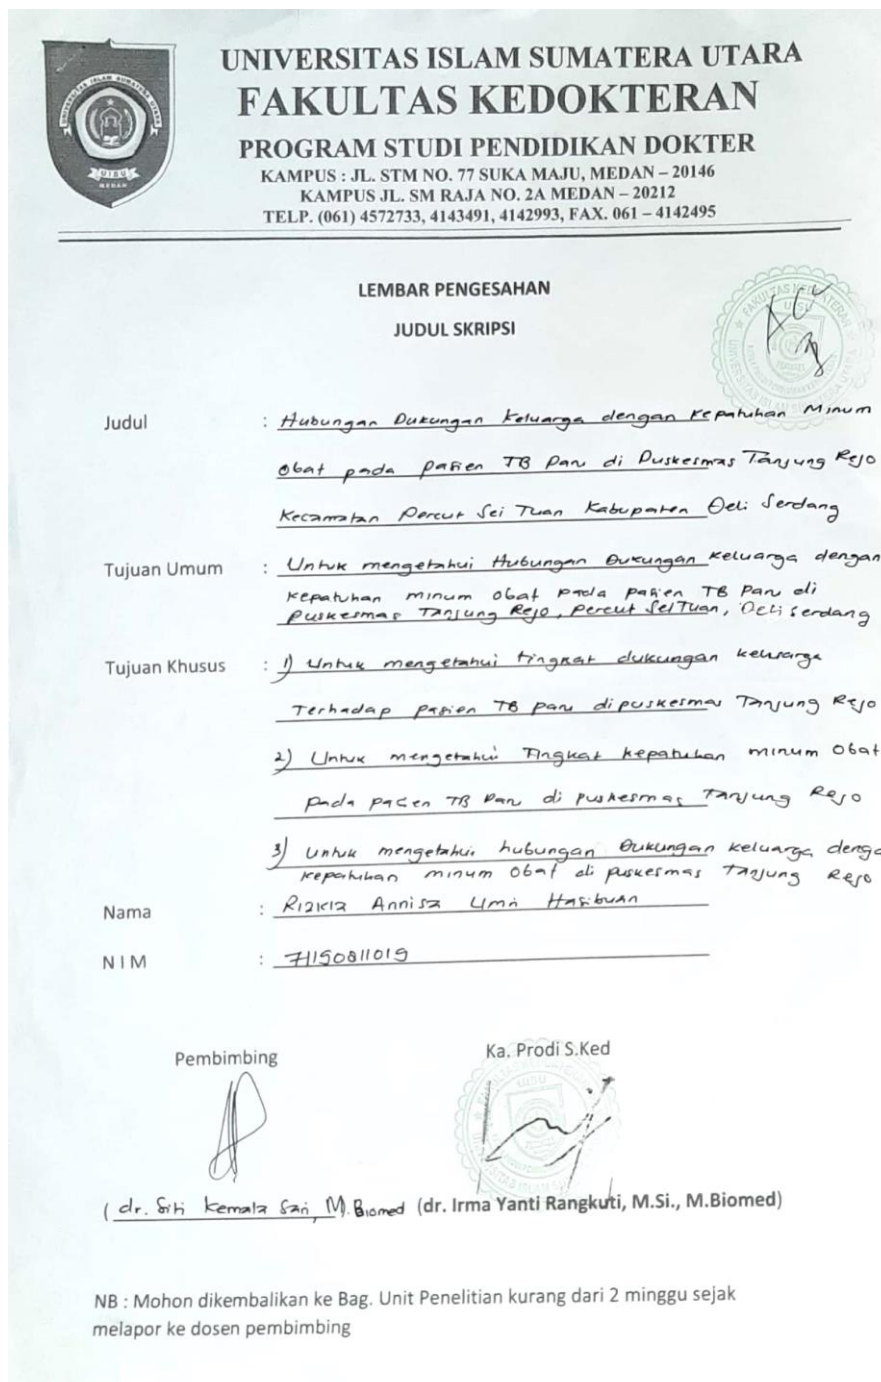 UNIVERSITAS ISLAM SUMATERA UTARA
FAKULTAS KEDOKTERAN
PROGRAM STUDI PENDIDIKAN DOKTER
KAMPUS : JL. STM NO. 77 SUKA MAJU, MEDAN – 20146
KAMPUS JL. SM RAJA NO. 2A MEDAN – 20212
TELP. (061) 4572733, 4143491, 4142993, FAX. 061 – 4142495
UNIVERSITAS ISLAM SUMATERA UTARA
UISU
MEDAN
LEMBAR PENGESAHAN
JUDUL SKRIPSI
ACC
Judul : Hubungan Dukungan Keluarga dengan Kepatuhan Minum
Obat pada pasien TB Paru di Puskesmas Tanjung Rejo
Kecamatan Percut Sei Tuan Kabupaten Deli Serdang
Tujuan Umum : Untuk mengetahui Hubungan Dukungan Keluarga dengan
Kepatuhan minum obat pada pasien TB Paru di
Puskesmas Tanjung Rejo, Percut Sei Tuan, Deli Serdang
Tujuan Khusus : 1) Untuk mengetahui tingkat dukungan keluarga
Terhadap pasien TB paru di puskesmas Tanjung Rejo
2) Untuk mengetahui Tingkat kepatuhan minum obat
pada pasien TB Paru di puskesmas Tanjung Rejo
3) Untuk mengetahui hubungan Dukungan keluarga denga
kepatuhan minum obat di puskesmas Tanjung Rejo
Nama : Rizkiz Annisz Umri Hasibuan
NIM : 71150811019
Pembimbing
Ka. Prodi S.Ked
(dr. Siti Kemala Sari, M.Biomed (dr. Irma Yanti Rangkuti, M.Si., M.Biomed)
NB : Mohon dikembalikan ke Bag. Unit Penelitian kurang dari 2 minggu sejak
melapor ke dosen pembimbing